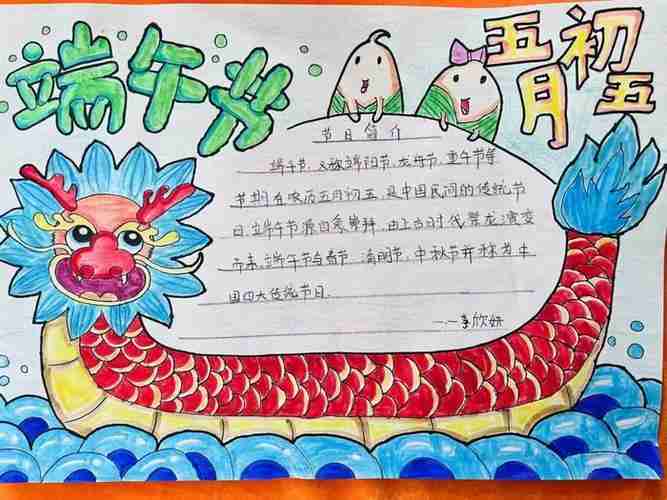 端午节
五月初五
节日简介
端午节,又称端阳节,龙舟节,重午节等
节期在农历五月初五,是中国民间的传统节
日,端午节源自天象崇拜,由上古时代祭龙演变
而来,端午节与春节,清明节,中秋节并称为中
国四大传统节日.
——李欣妍